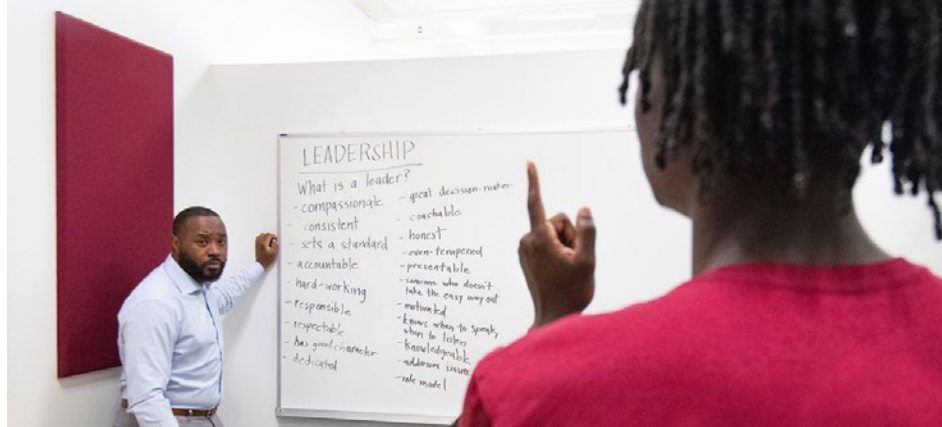 LEADERSHIP
What is a leader?
- compassionate
- consistent
- sets a standard
- accountable
- hard-working
- responsible
- respectable
- has good character
- dedicated
- great decision-maker
- coachable
- honest
- even-tempered
- presentable
- someone who doesn't
take the easy way out
- motivated
- knows when to speak,
when to listen
- knowledgeable
- addresses issues
- role model